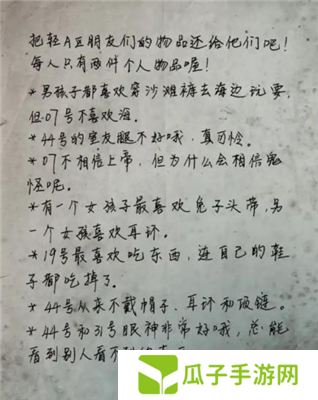 把轻A区朋友们的物品还给他们吧!
每人只有两件个人物品喔!
*男孩子都喜欢穿沙滩裤去海边玩耍,
但07号不喜欢海。
*44号的室友腿不好哦,真可怜。
*07不相信上帝,但为什么会相信鬼
怪呢。
*有一个女孩子最喜欢兔子头带,另
一个女孩喜欢耳环。
*19号最喜欢吃东西,连自己的鞋
子都吃掉了。
*44号从来不戴帽子、耳环和项链。
*44号和31号眼神非常好哦,总能
看到别人看不
瓜子手游网